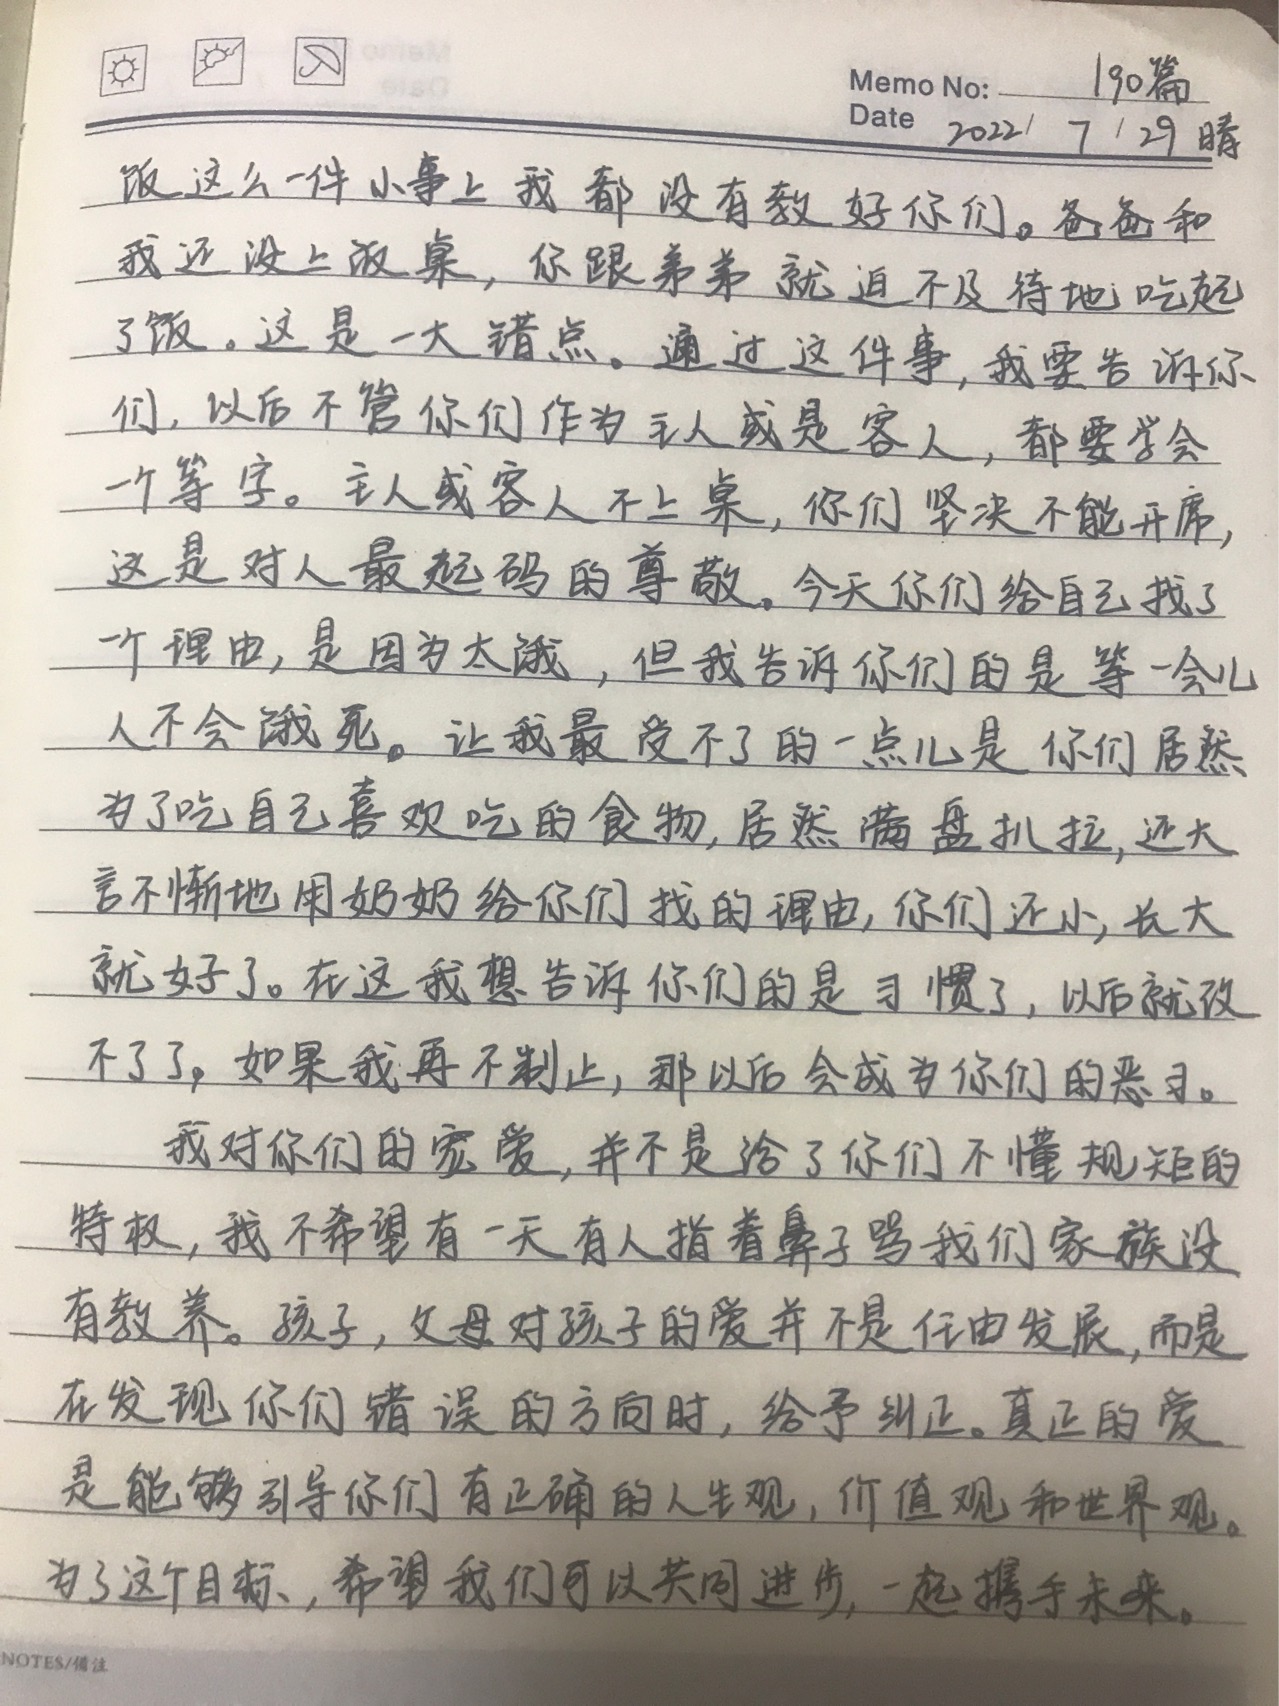 Memo No: 190篇
Date 2022/7/29 晴
饭这么一件小事上我都没有教好你们。爸爸和
我还没上饭桌，你跟弟弟就迫不及待地吃起
了饭。这是一大错点。通过这件事，我要告诉你
们，以后不管你们作为主人或是客人，都要学会
一个等字。主人或客人不上桌，你们坚决不能开席，
这是对人最起码的尊敬。今天你们给自己找了
一个理由，是因为太饿，但我告诉你们的是等一会儿
人不会饿死。让我最受不了的一点儿是你们居然
为了吃自己喜欢吃的食物，居然满盘扒拉，还大
言不惭地用奶奶给你们找的理由，你们还小，长大
就好了。在这我想告诉你们的是习惯了，以后就改
不了了，如果我再不制止，那以后会成为你们的恶习。
我对你们的宠爱，并不是给了你们不懂规矩的
特权，我不希望有一天有人指着鼻子骂我们家族没
有教养。孩子，父母对孩子的爱并不是任由发展，而是
在发现你们错误的方向时，给予纠正。真正的爱
是能够引导你们有正确的人生观，价值观和世界观。
为了这个目标、，希望我们可以共同进步，一起携手未来。
NOTES/備注